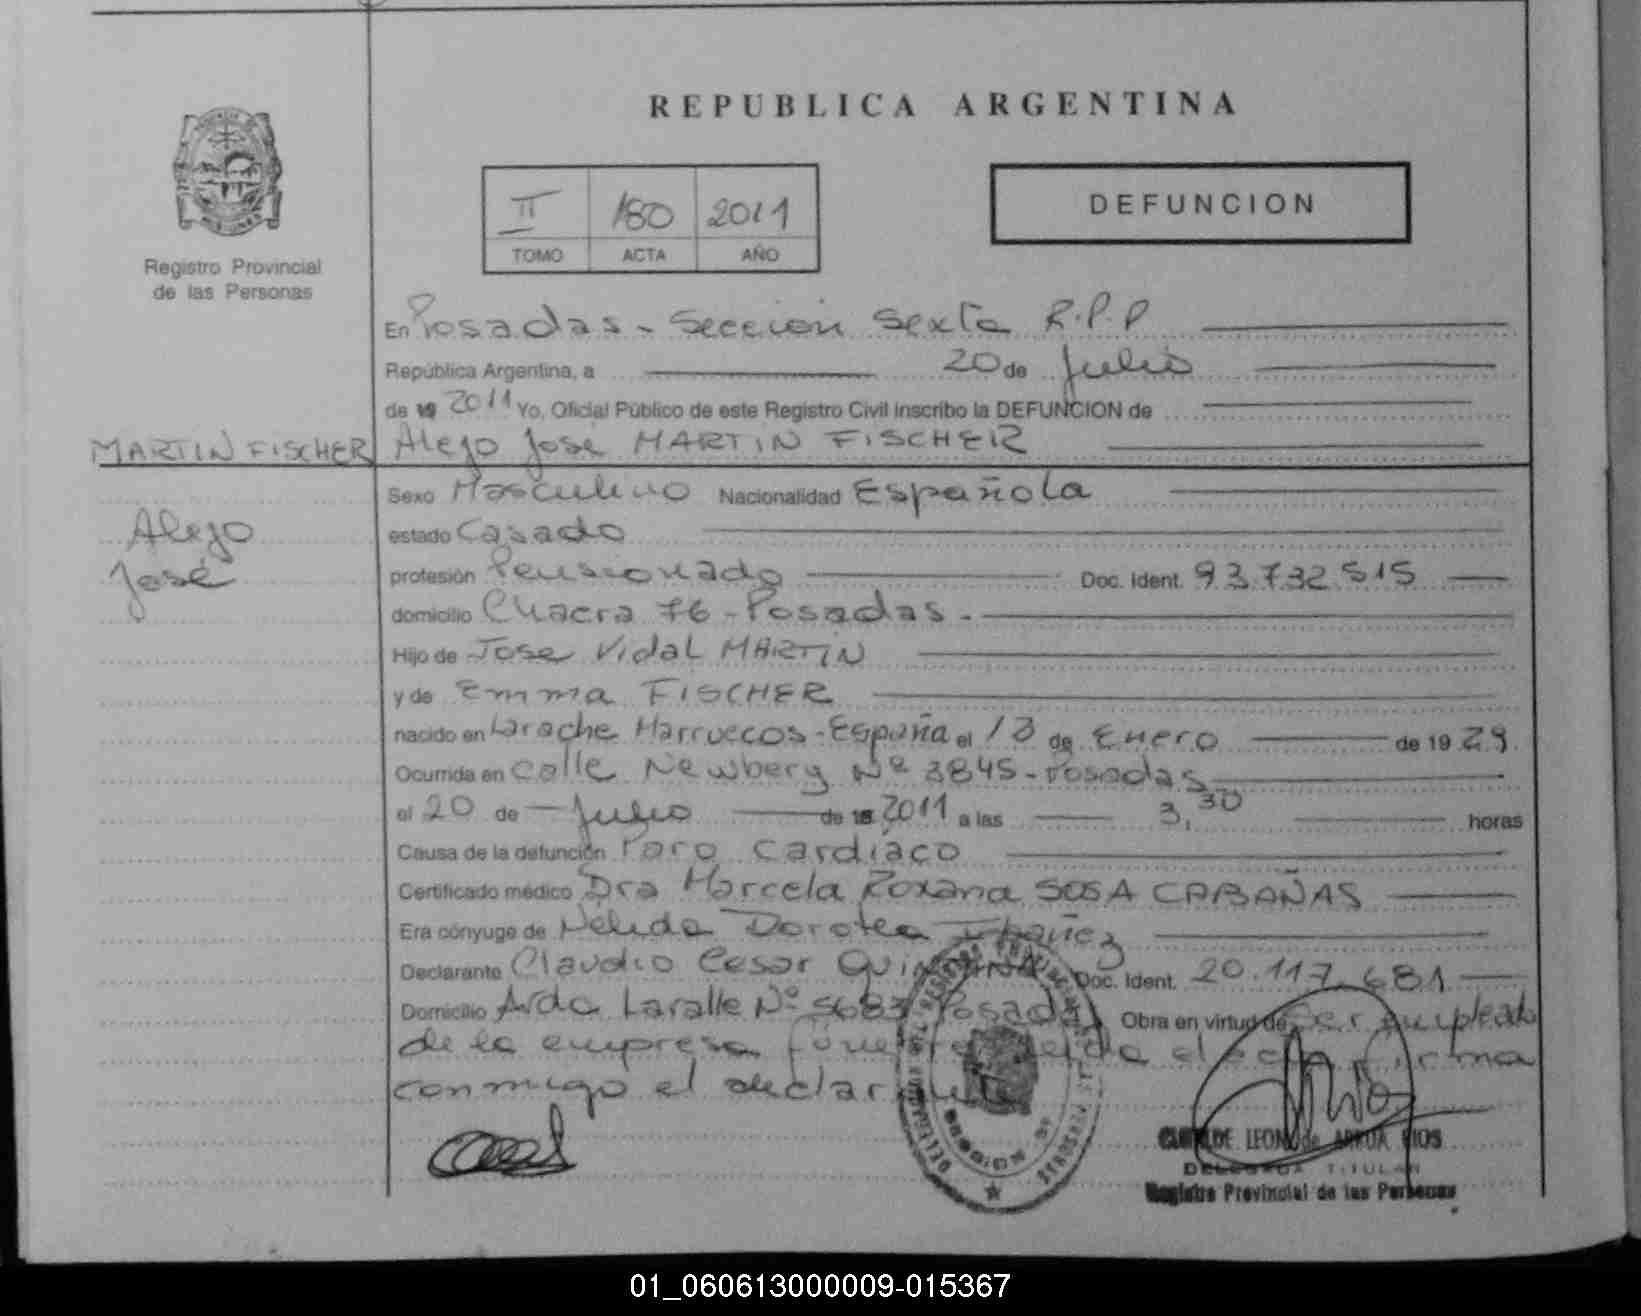 REPUBLICA ARGENTINA
II 180 2011
TOMO ACTA AÑO
DEFUNCION
Registro Provincial
de las Personas
En Posadas - Sección Sexta R.P.P
República Argentina, a 20 de Julio
de 19 2011 Yo, Oficial Público de este Registro Civil inscribo la DEFUNCION de
MARTIN FISCHER Alejo José MARTIN FISCHER
Alejo
José
Sexo Masculino Nacionalidad Española
estado Casado
profesión Pensionado Doc. Ident. 93.732.515
domicilio Chacra 76 - Posadas -
Hijo de Jose Vidal MARTIN
y de Emma FISCHER
nacido en Larache Marruecos - España el 13 de Enero de 1929.
Ocurrida en Calle Newbery Nº 3845 - Posadas
el 20 de Julio de 19 2011 a las 3,30 horas
Causa de la defunción Paro Cardíaco
Certificado médico Dra Marcela Roxana SOSA CABAÑAS
Era cónyuge de Nelida Dorotea Ibañez
Declarante Claudio Cesar Doc. Ident. 20.117.681
Domicilio Avda Nº Posadas Obra en virtud de Ser empleado
de la empresa el acta firma
conmigo el declarante
LEON de ARRUA RIOS
DELEGADA TITULAR
Registro Provincial de las Personas
01_060613000009-015367